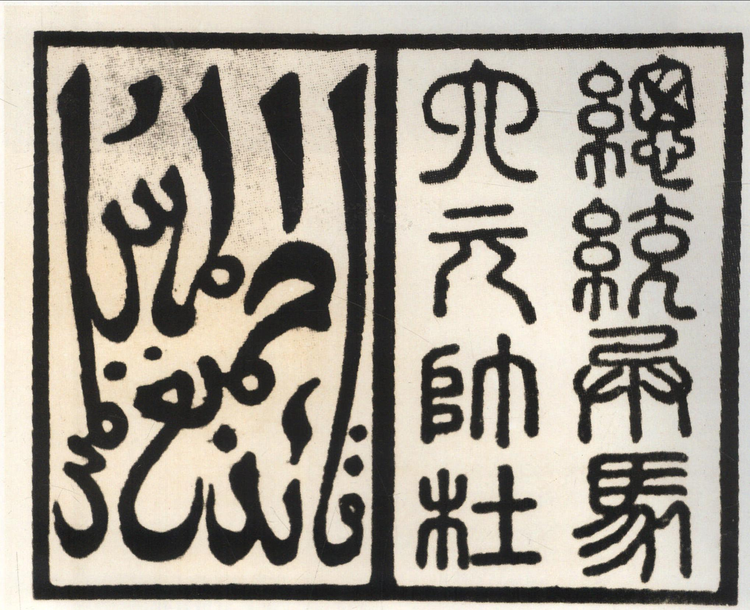 總統兵馬
大元帥杜
قائد جميع